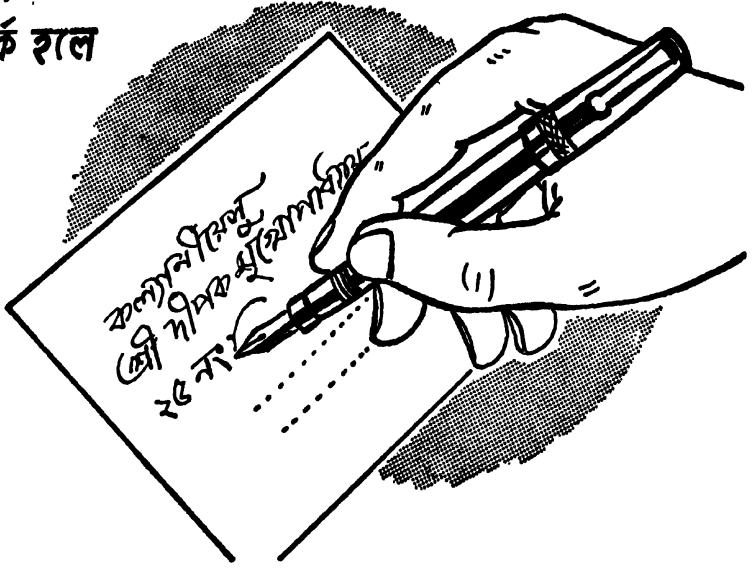 হলে
কল্যাণীয়েষু
শ্রী দীপক মুখোপাধ্যায়
২৫ নং